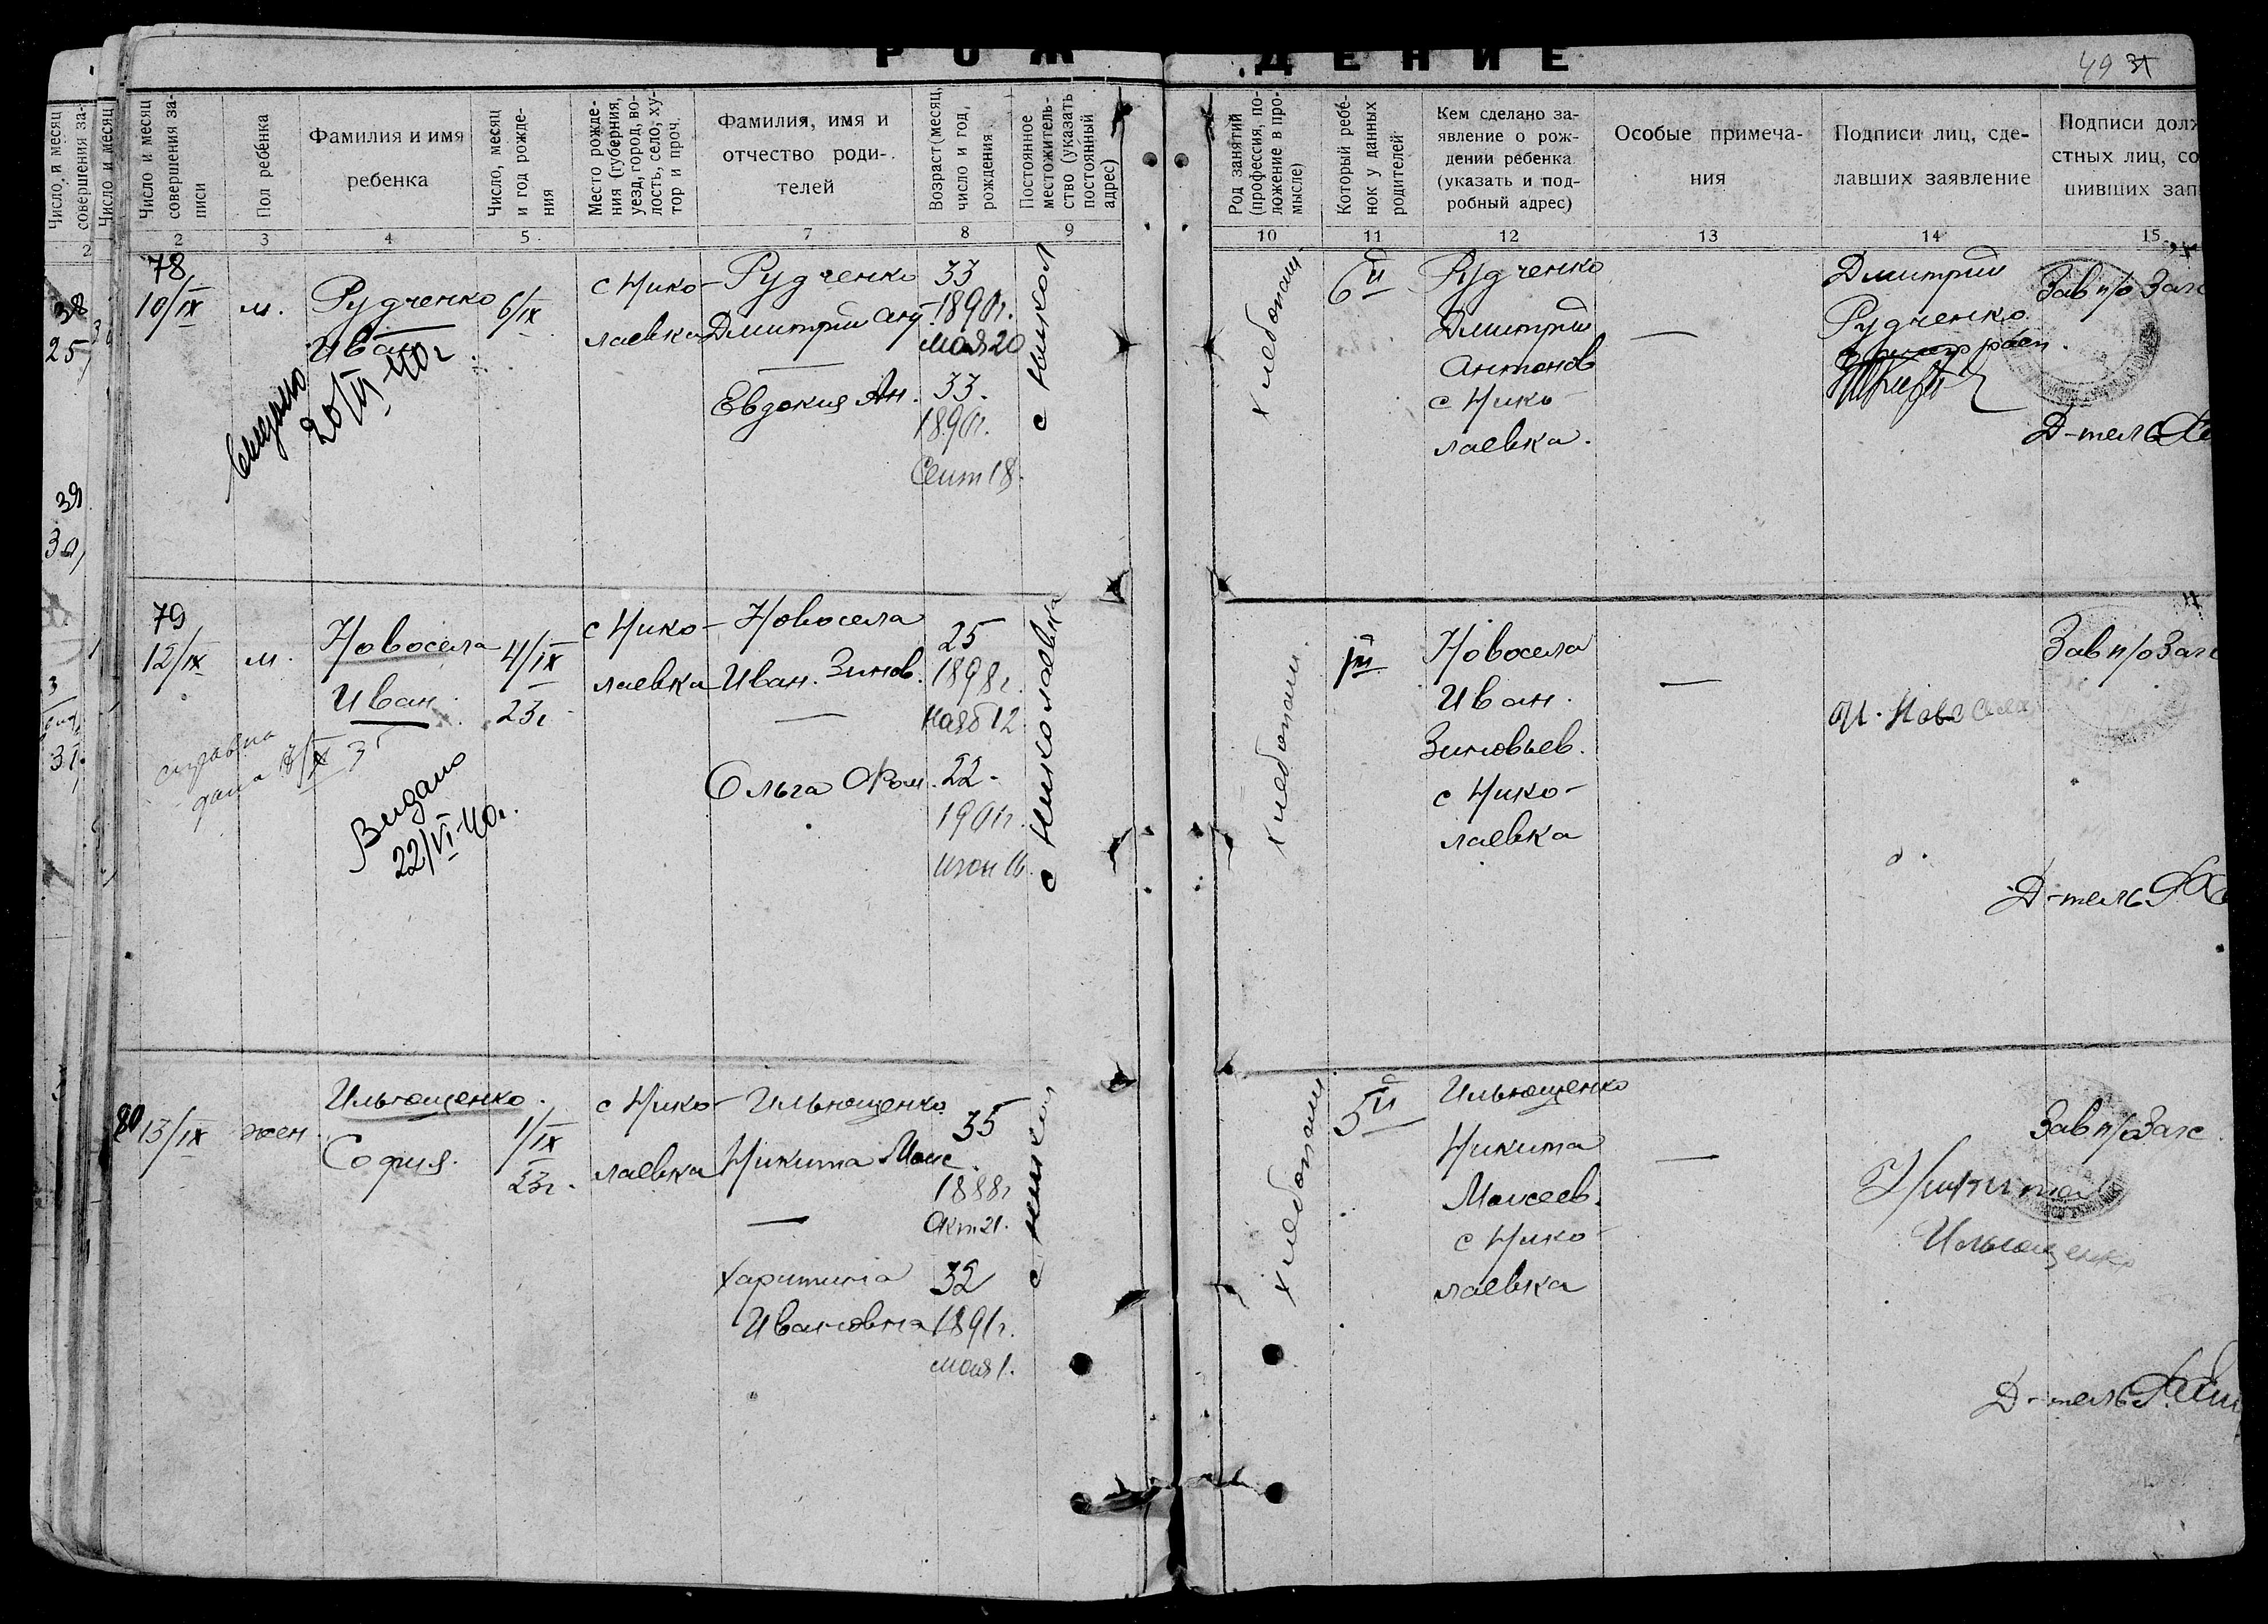 РОЖДЕНИЕ
49
Число и месяц совершения за-
писи
Пол ребёнка
Фамилия и имя
ребенка
Число, месяц
и год рожде-
ния
Место рожде-
ния (губерния,
уезд, город, во-
лость, село, ху-
тор и проч.
Фамилия, имя и
отчество роди-
телей
Возраст (месяц,
число и год,
рождения
Постоянное
местожитель-
ство (указать
постоянный
адрес)
Род занятий
(профессия, по-
ложение в про-
мысле)
Который ребе-
нок у данных
родителей
Кем сделано за-
явление о рож-
дении ребенка
(указать и под-
робный адрес)
Особые примеча-
ния
Подписи лиц, сде-
лавших заявление
Подписи долж
стных лиц, со
шивших зап
2 3 4 5 7 8 9 10 11 12 13 14 15
78
10/IX
м.
Рудченко
Иван
20/VI 40г
6/IX
с Нико-
лаевка
Рудченко
Дмитрий Ант.
—
Евдокия Ан.
33
1890г.
мая 20
33.
1890г.
Сент 18.
с Никол
хлебопаш.
6й
Рудченко
Дмитрий
Антонов
с Нико-
лаевка.
—
Дмитрий
Рудченко
Зав п/о Загс
Д-тель
79
12/IX
м.
Новосела
Иван
справка
дана
Видано
22/VI 40г.
4/IX
23г
с Нико-
лаевка
Новосела
Иван. Зинов.
—
Ольга Фом.
25
1898г.
нояб 12
22-
1901г.
июн 16.
с Николаевка
хлебопаш.
Новосела
Иван.
Зиновьев.
с Нико-
лаевка
—
И. Новосела
Зав п/о Загс
Д-тель
80
13/IX
жен.
Ильющенко.
София.
1/IX
23г.
с Нико-
лаевка
Ильющенко
Никита Моис.
—
Харитина
Ивановна
35
1888г
Окт 21.
32
1891г.
мая 1.
с Никол
хлебопаш
5й
Ильющенко
Никита
Моисеев.
с Нико-
лаевка
—
Никита
Ильющенко
Зав п/о Загс.
Д-тель